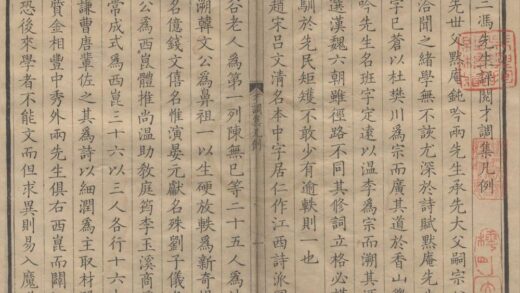 二馮先生評閱才調集凡例
先世父默庵鈍吟兩先生承先大父嗣宗
洽聞之緒學無不該尤深於詩賦默庵先
字已蒼以杜樊川為宗而廣其道於香山
吟先生名班字定遠以溫李為宗而溯其
選漢魏六朝雖徑路不同其修詞立格必
馴於先民矩矱不敢少有逾軼則一也
調集凡例
趙宋呂文清名本中字居仁作江西詩派
谷老人為第一列陳無巳等二十五人為
溯韓文公為鼻祖一以生硬放軼為新奇
名億錢文僖名惟演晏元獻名殊劉子儀
公為西崑體推尚溫助教庭筠李玉溪商
常成式為西崑三十六以三人各行十六
謙曹唐輩佐之其為詩以細潤為主取材
貴金相豐中秀外兩先生俱右西崑而闢
恐後來學者不能文而但求異則易入魔